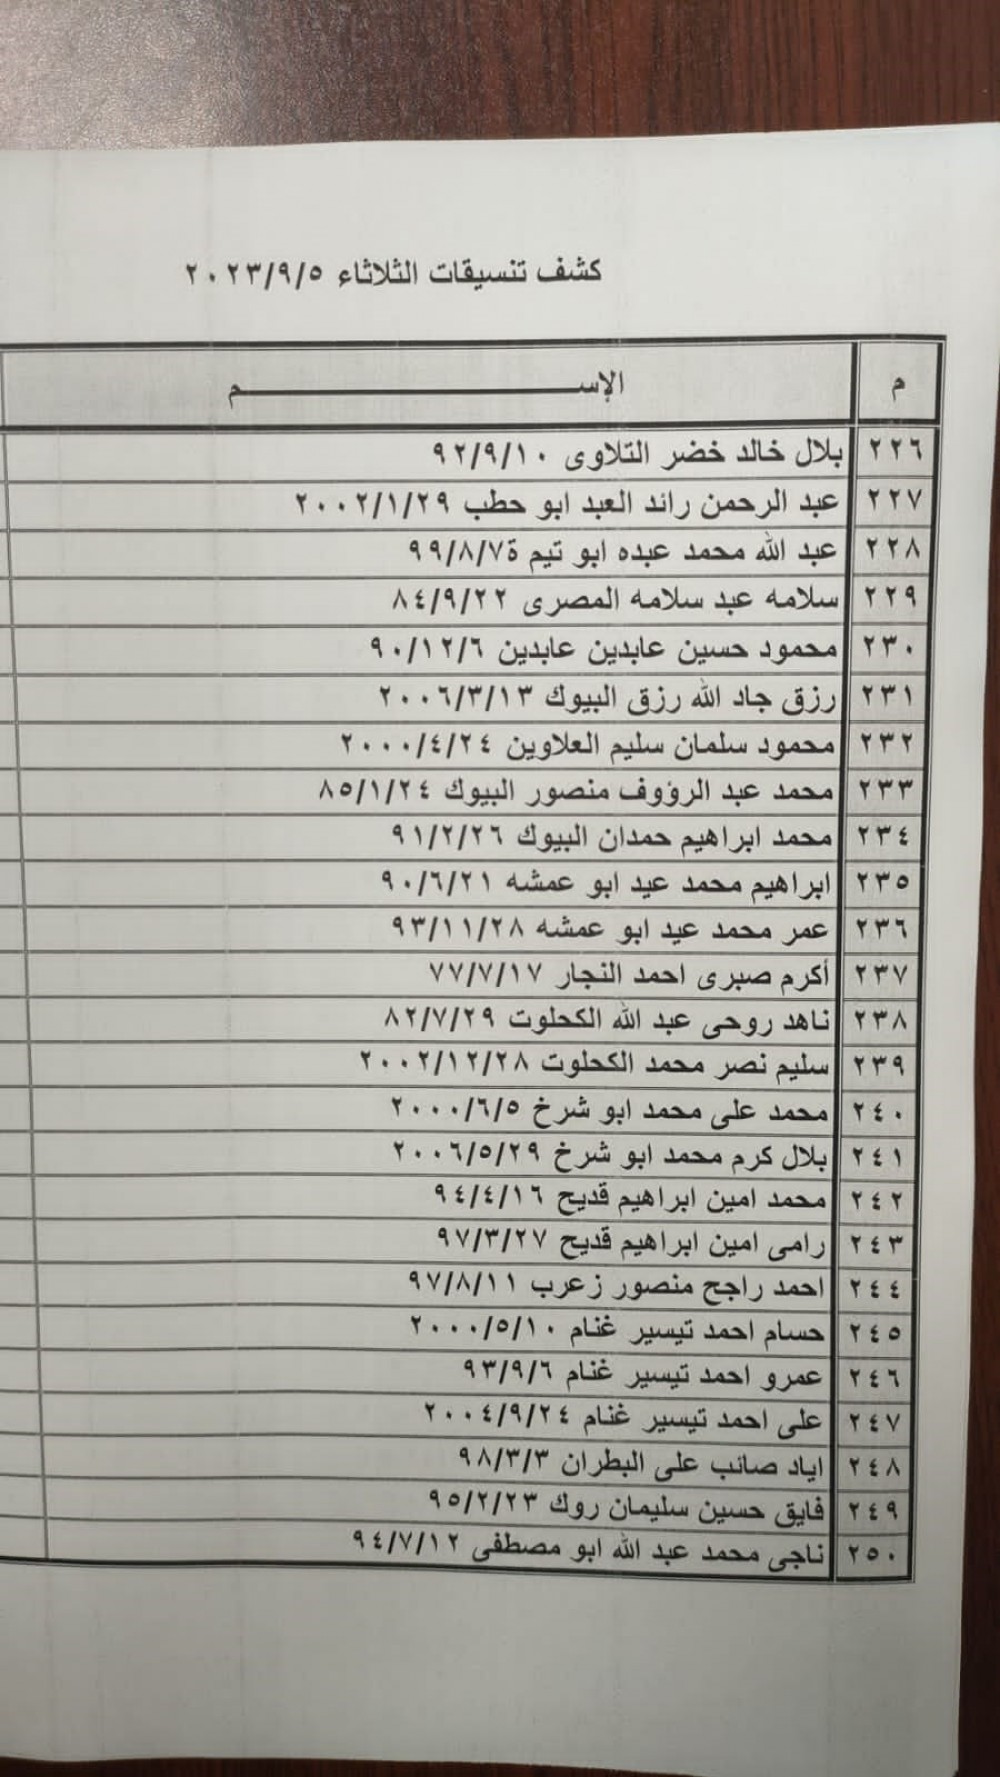 كشف تنسيقات الثلاثاء ٢٠٢٣/٩/٥
م الإســـــــــــــــم
٢٢٦ بلال خالد خضر التلاوى ٩٢/٩/١٠
٢٢٧ عبد الرحمن رائد العبد ابو حطب ٢٠٠٢/١/٢٩
٢٢٨ عبد الله محمد عبده ابو تيم ة٩٩/٨/٧
٢٢٩ سلامه عبد سلامه المصرى ٨٤/٩/٢٢
٢٣٠ محمود حسين عابدين عابدين ٩٠/١٢/٦
٢٣١ رزق جاد الله رزق البيوك ٢٠٠٦/٣/١٣
٢٣٢ محمود سلمان سليم العلاوين ٢٠٠٠/٤/٢٤
٢٣٣ محمد عبد الرؤوف منصور البيوك ٨٥/١/٢٤
٢٣٤ محمد ابراهيم حمدان البيوك ٩١/٢/٢٦
٢٣٥ ابراهيم محمد عيد ابو عمشه ٩٠/٦/٢١
٢٣٦ عمر محمد عيد ابو عمشه ٩٣/١١/٢٨
٢٣٧ أكرم صبرى احمد النجار ٧٧/٧/١٧
٢٣٨ ناهد روحى عبد الله الكحلوت ٨٢/٧/٢٩
٢٣٩ سليم نصر محمد الكحلوت ٢٠٠٢/١٢/٢٨
٢٤٠ محمد على محمد ابو شرخ ٢٠٠٠/٦/٥
٢٤١ بلال كرم محمد ابو شرخ ٢٠٠٦/٥/٢٩
٢٤٢ محمد امين ابراهيم قديح ٩٤/٤/١٦
٢٤٣ رامى امين ابراهيم قديح ٩٧/٣/٢٧
٢٤٤ احمد راجح منصور زعرب ٩٧/٨/١١
٢٤٥ حسام احمد تيسير غنام ٢٠٠٠/٥/١٠
٢٤٦ عمرو احمد تيسير غنام ٩٣/٩/٦
٢٤٧ على احمد تيسير غنام ٢٠٠٤/٩/٢٤
٢٤٨ اياد صائب على البطران ٩٨/٣/٣
٢٤٩ فايق حسين سليمان روك ٩٥/٢/٢٣
٢٥٠ ناجى محمد عبد الله ابو مصطفى ٩٤/٧/١٢